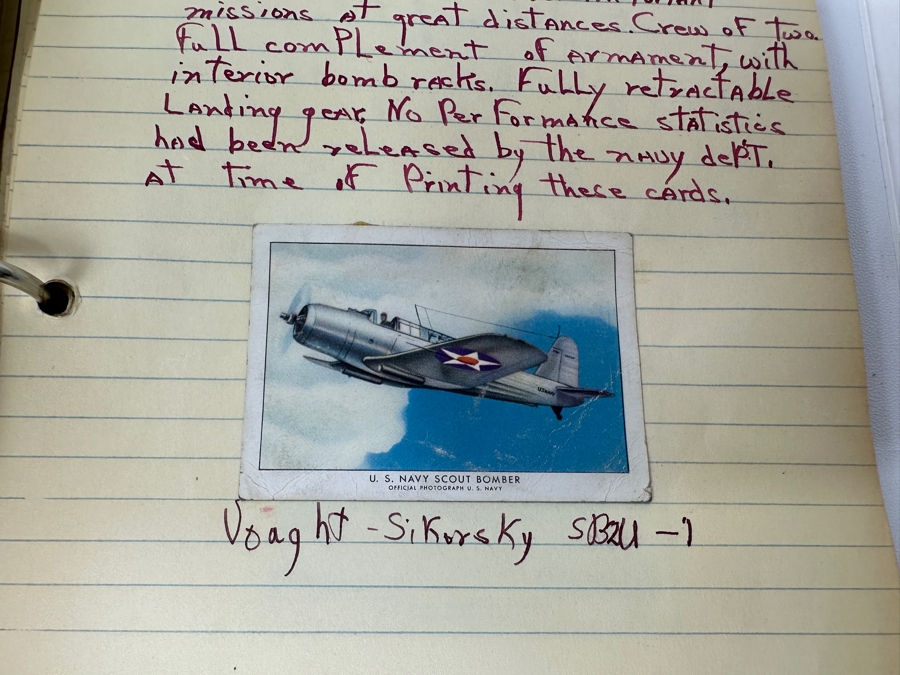 missions At great distances. Crew of Two.
full comPlement of ArmAment, with
interior bomb racks. Fully retrActAble
LAnding geAr. No PerFormance stAtistics
had been releAsed by the nAvy dePT.
At Time of Printing these cArds.
U. S. NAVY SCOUT BOMBER
OFFICIAL PHOTOGRAPH U. S. NAVY
Voaght - SiKorsKy SB2U -1